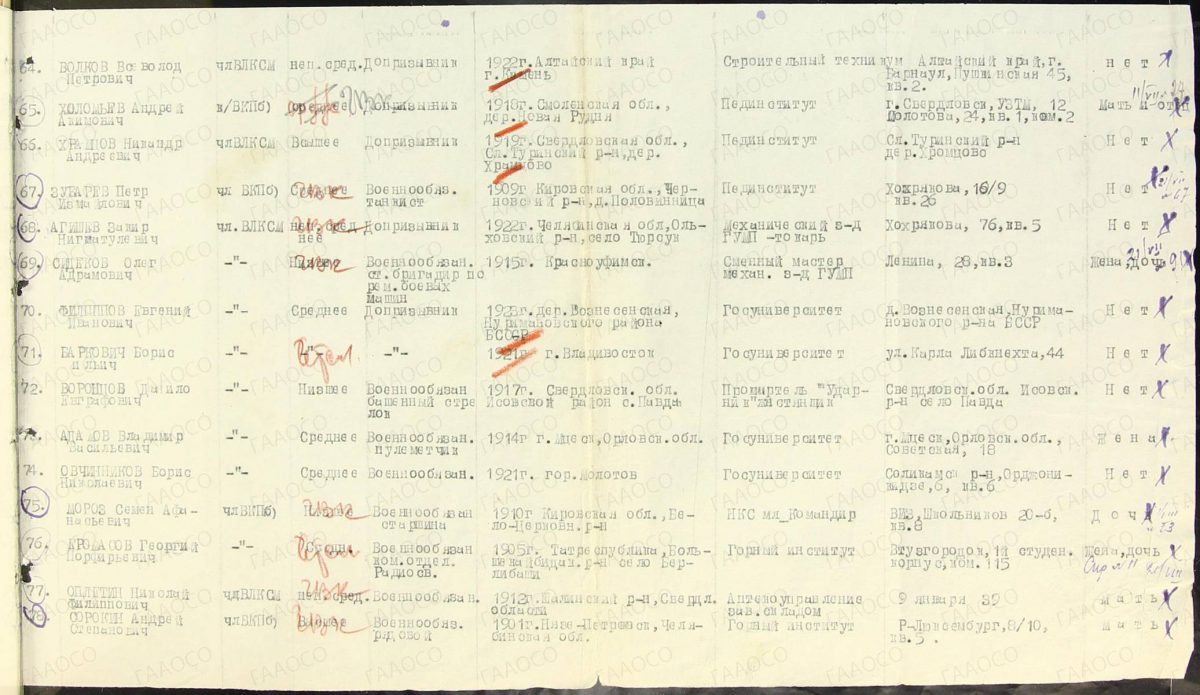 64. ВОЛКОВ Всеволод члВЛКСМ неп.сред. Допризывник 1922г. Алтайский край Строительный техникум Алтайский край,г. нет
Петрович г. Камень Барнаул, Пушкинская 45,
кв.2.
65. ХОЛОМЬЕВ Андрей к/ВКПб) среднее Допризывник 1918г. Смоленская обл., Пединститут г. Свердловск, УЗТМ, 12 Мать и отец
Акимович дер. Новая Рудня Молотова,24,кв.1,ком.2
66. ХРАМЦОВ Никандр члВЛКСМ Высшее Допризывник 1919г. Свердловская обл., Пединститут Сл. Туринский р-н Нет
Андреевич Сл.Туринский р-н,дер. дер. Хромцово
67. ЗУБАРЕВ Петр чл ВКПб) Среднее Военнообяз. 1909г Кировская обл.,Чер- Пединститут Хохрякова,16/9 Нет
Измайлович танкист новский р-н,д.Половинница кв.26
68. АГИШЕВ Закир чл.ВЛКСМ неп.сред- Допризывник 1922г. Челябинская обл,Оль- Механический з-д Хохрякова, 76,кв.5 Нет
Нигматулевич нее ховский р-н,село Тюрсук ГУМП -токарь
69. Олег -"- Военнообязан. 1915г. Красноуфимск. Сменный мастер Ленина, 28,кв.3 Жена,дочь
Адрамович ст.бригадир по механ. з-д ГУМП
рем.боевых
машин
70. ФИЛИППОВ Евгений -"- Среднее Допризывник дер.Вознесенская, Госуниверситет д.Вознесенская,Нурима- Нет
Иванович Нуримановского района новского р-на БССР
71. БАРКОВИЧ Борис -"- -"- -"- 1921г. г.Владивосток Госуниверситет ул.Карла Либкнехта,44 Нет
Ильич
72. ВОРОНЦОВ Данило -"- Низшее Военнообязан 1917г. Свердловск. обл. Промартель "Удар- Свердловск.обл. Исовск. Нет
Евграфович башенный стре Исовской район с.Павда р-н село Павда
лок
73. АДАМОВ Владимир -"- Среднее Военнообязан. 1914г г.Мцеск,Орловск.обл. Госуниверситет г.Мцеск,Орловск.обл., Жена
Васильевич пулеметчик Советская, 18
74. ОВЧИННИКОВ Борис -"- Среднее Военнообязан. 1921г. гор.Молотов Госуниверситет Соликамск р-н,Орджони- Нет
Николаевич кидзе,6, кв.6
75. МОРОЗ Семен Афа- члВКПб) Военнообязан 1910г Кировская обл.,Бе- НКС мл_Командир ВИЗ,Школьников 20-б, Дочь
насьевич старшина ло-Церковн.р-н кв.8
76. Георгий -"- Средн. Военнообязан 1905г. Татреспублика,Боль- Горный институт Втузгородок,1й студен. Жена,дочь
Порфирьевич ком.отдел. село Бер- корпус,ком.115
Радиосв. либаши
77. ОПЛЕТИН Николай члВЛКСМ неп.сред. Военнообязан. 1912г. р-н,Свердл. Автомоуправление 9 января 39 Мать
Филиппович области зав.складом
78. СОРОКИН Андрей члВКПб) Высшее Военнообяз. 1901г. Нязе-Петровск,Челя- Горный институт Р-Люксембург,8/10, Мать
Степанович рядовой бинская обл. кв.5.